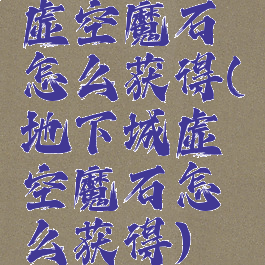 虚空魔石
怎么获得(
地下城虚
空魔石怎
么获得)